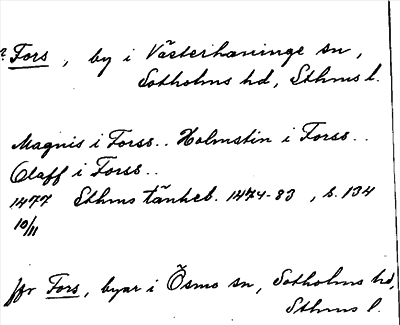 ? Fors, by i Västerhaninge sn,
Sotholms hd, Sthms l.
Magnis i Forss.. Holmstin i Forss..
Olaff i Forss..
1477 Sthms tänkeb. 1474-83, s. 134
10/11
jfr Fors, byar i Ösmo sn, Sotholms hd,
Sthms l.